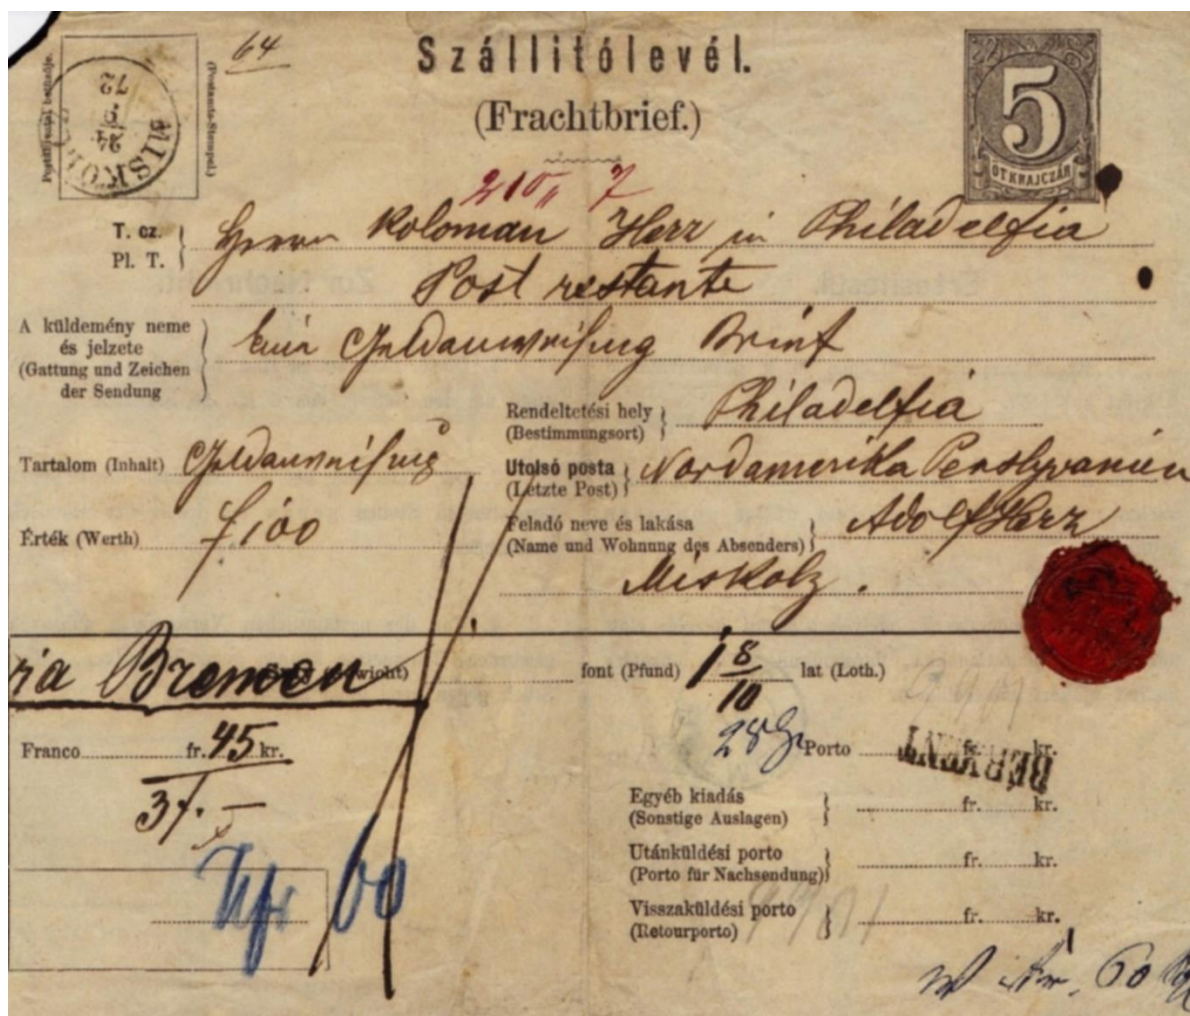 64
Szállitólevél.
(Frachtbrief.)
5
ÖT KRAJCZÁR
MISKOLCZ
24/9
72
(Postamts-Stempel.)
210 7
T. cz.
Pl. T.
Herrn Koloman Herz in Philadelfia
Post restante
A küldemény neme
és jelzete
(Gattung und Zeichen
der Sendung
Ein Geldanweisung Brief
Rendeltetési hely
(Bestimmungsort)
Philadelfia
Tartalom (Inhalt) Geldanweisung
Utolsó posta
(Letzte Post)
Nordamerika Penslyvanien
Érték (Werth) f 100
Feladó neve és lakása
(Name und Wohnung des Absenders)
Adolf Herz
Miskolz.
via Bremen
font (Pfund) 1 8/10 lat (Loth.)
Franco fr. 45 kr.
37.—
28 Porto fr. kr.
BÉRMENT
Egyéb kiadás
(Sonstige Auslagen)
fr. kr.
Utánküldési porto
(Porto für Nachsendung)
fr. kr.
60
Visszaküldési porto
(Retourporto)
fr. kr.
60